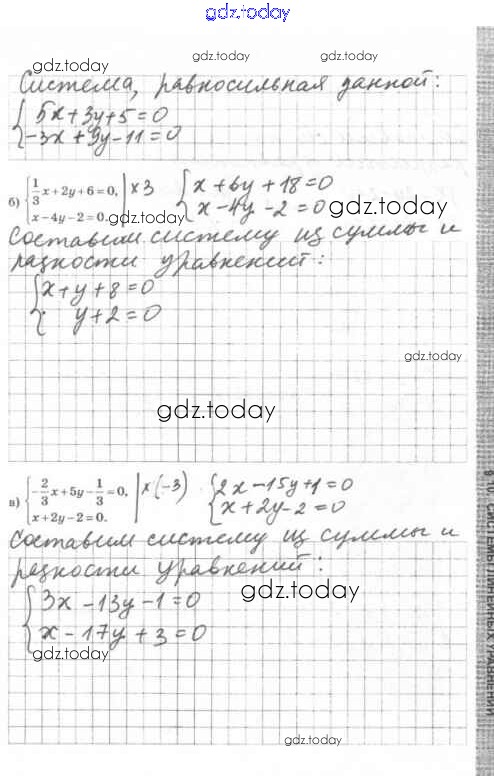 gdz.today
gdz.today
gdz.today gdz.today
Система, равносильная данной:
{ 5x+3y+5=0
-3x+9y-11=0
б) { 1/3 x+2y+6=0, | x3 { x+6y+18=0
x-4y-2=0. x-4y-2=0
gdz.today gdz.today
Составим систему из суммы и
разности уравнений:
{ x+y+8=0
y+2=0
gdz.today
gdz.today
в) { -2/3 x+5y-1/3=0, | x(-3) { 2x-15y+1=0
x+2y-2=0. x+2y-2=0
Составим систему из суммы и
разности уравнений:
gdz.today
{ 3x-13y-1=0
x-17y+3=0
gdz.today
gdz.today
§ 10. СИСТЕМЫ ЛИНЕЙНЫХ УРАВНЕНИЙ